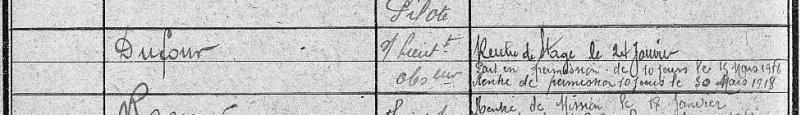 Pilote
Dufour s/Lieut^t Rentre de Stage le 24 Janvier
Obs^eur Part en permission de 10 jours le 15 Mars 1918
Rentre de permission 10 jours le 30 Mars 1918
Rentre de Mission le 18 Janvier